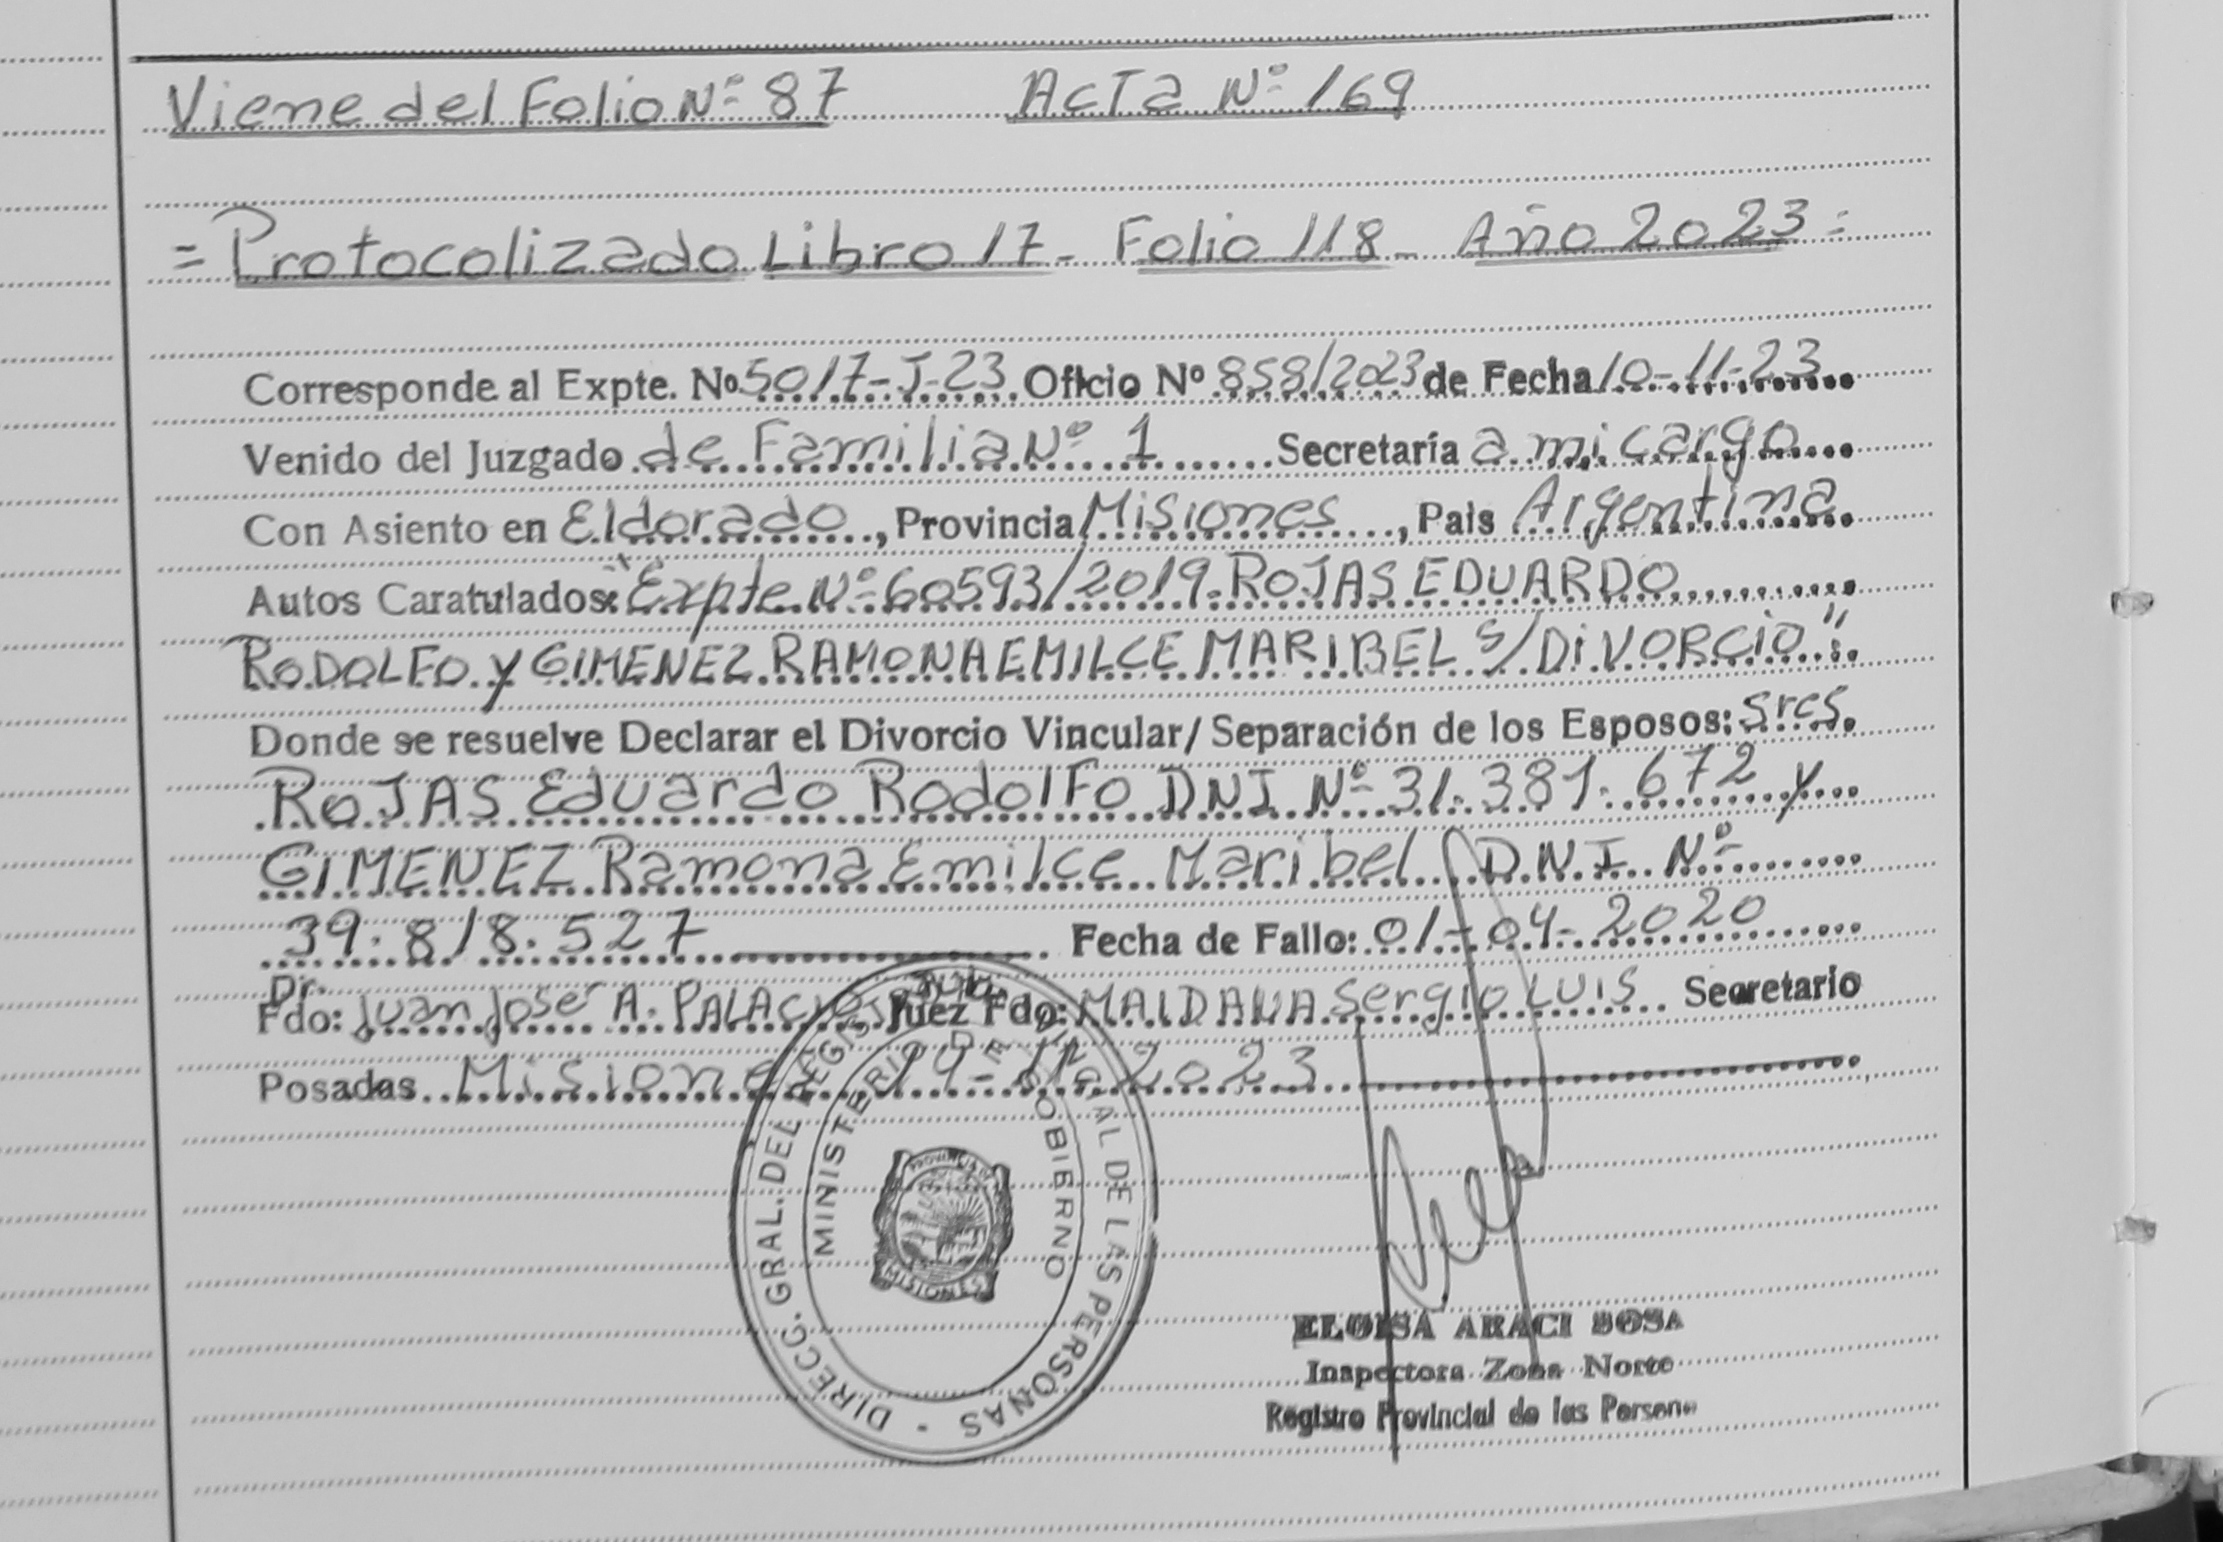 Viene del Folio Nº 87 Acta Nº 169
= Protocolizado Libro 17 - Folio 118 - Año 2023 =
Corresponde al Expte. Nº 5017-J-23 Oficio Nº 858/2023 de Fecha 10-11-23
Venido del Juzgado de Familia Nº 1 Secretaría a mi cargo
Con Asiento en Eldorado, Provincia Misiones, Pais Argentina
Autos Caratulados: "Expte Nº 60593/2019. ROJAS EDUARDO
RODOLFO y GIMENEZ RAMONA EMILCE MARIBEL S/ DiVORCiO".
Donde se resuelve Declarar el Divorcio Vincular/Separación de los Esposos: Sres.
ROJAS Eduardo Rodolfo DNI Nº 31.381.672 y
GIMENEZ Ramona Emilce Maribel D.N.I. Nº
39.818.527 Fecha de Fallo: 01-04-2020
Dr.
Fdo: Juan José A. PALACIO Juez Fdo: MAIDANA Sergio LUIS Secretario
Posadas Misiones 14-11-2023
DIRECC. GRAL. DEL REGISTRO PROVINCIAL DE LAS PERSONAS -
MINISTERIO DE GOBIERNO
PROVINCIA DE
MISIONES
ELOISA ARACI SOSA
Inspectora Zona Norte
Registro Provincial de las Persona